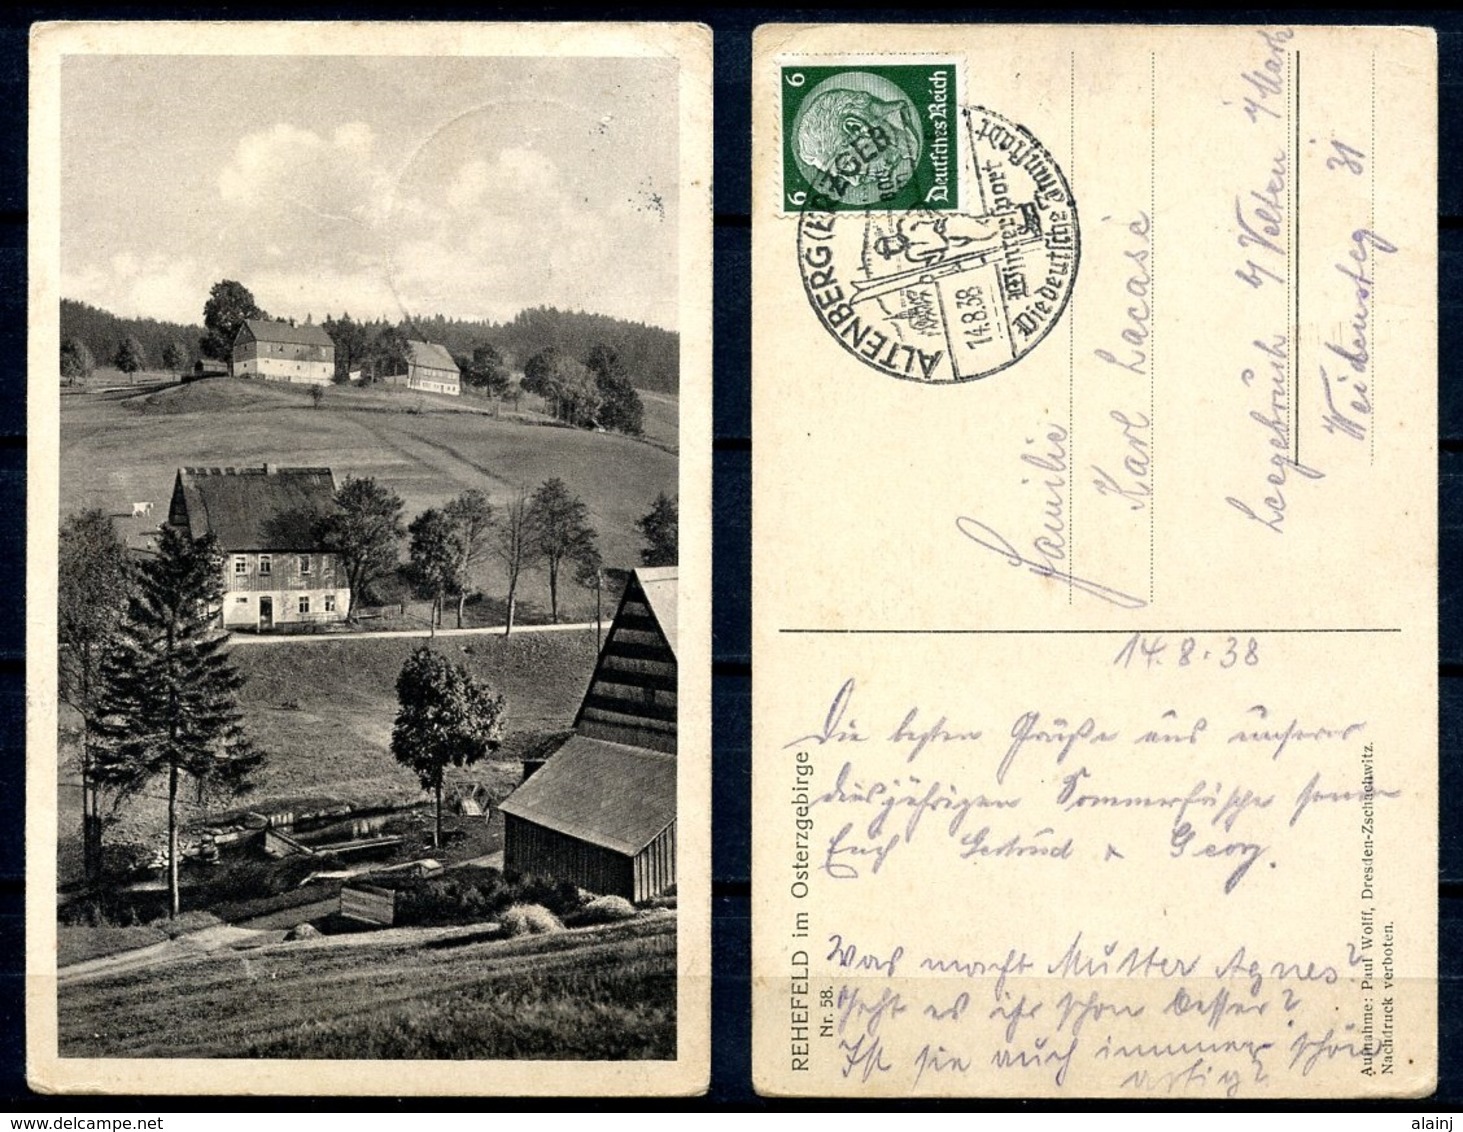 6 6
Deutsches Reich
ALTENBERG (ERZGEB.)
14.8.38
Wintersport
Die deutsche
Familie
Karl Lacase
Leegebruch by Velten i/Mark
Weidensteg 31
14.8.38
Die besten Grüße aus unserer
diesjährigen Sommerfrische senden
Euch Gertrud & Georg.
Was macht Mutter Agnes?
Geht es ihr schon besser?
Ist sie auch immer schön
artig?
REHEFELD im Osterzgebirge
Nr. 58.
Aufnahme: Paul Wolff, Dresden-Zschachwitz.
Nachdruck verboten.
delcampe.net
alainj